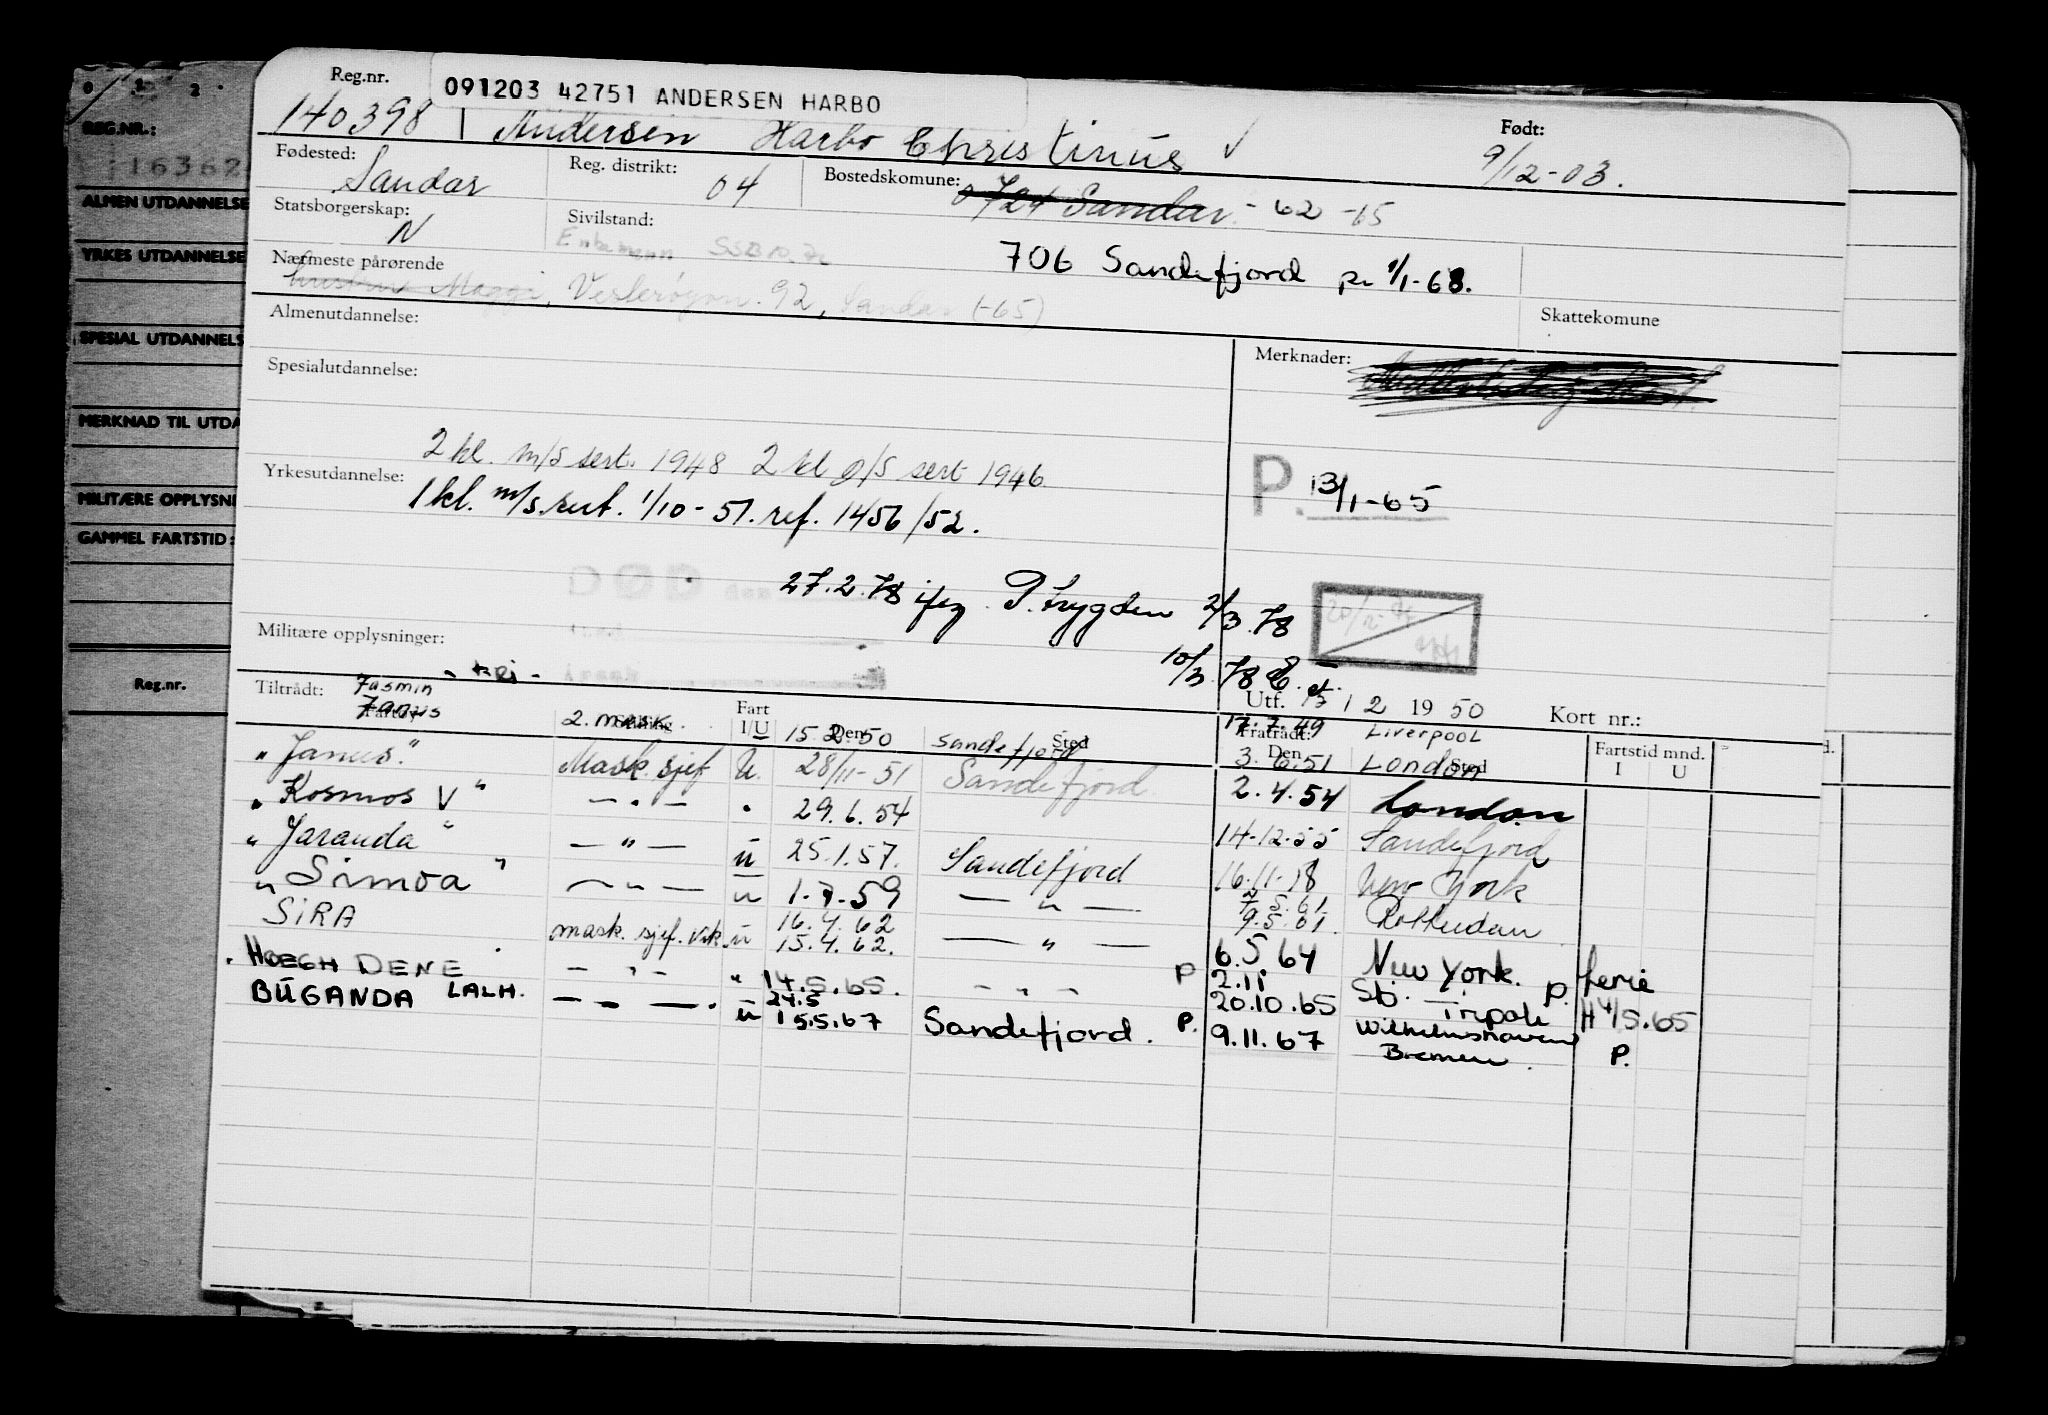 0 1 2
REG.NR.:
16362
ALMEN UTDANNELSE
YRKES UTDANNELSE
SPESIAL UTDANNELS
MERKNAD TIL UTDA
MILITÆRE OPPLYSNI
GAMMEL FARTSTID:
Reg.nr.
Reg.nr.
091203 42751 ANDERSEN HARBO
140398 Andersen Harbo Christinus
Født:
9/12-03.
Fødested: Sandar
Reg. distrikt: 04
Bostedskomune: 0724 Sandar - 62 -65
Statsborgerskap: N
Sivilstand: Enkemann
706 Sandefjord pr 1/1-68.
Nærmeste pårørende
Maggi, Vesterøyvn. 92, Sandar (-65)
Skattekomune
Almenutdannelse:
Merknader:
Spesialutdannelse:
2 kl. m/s sert. 1948 2 kl d/s sert 1946
Yrkesutdannelse: 1 kl. m/s. sert. 1/10-51. ref. 1456/52.
P. 13/1-65
DØD den 27.2.78 ifg. P. trygden 2/3.78
Militære opplysninger:
10/3.78
Tiltrådt: Jasmin
Janus
Fartøy
2. mask.
Stilling
Fart
I/U
15.2.50
Den
Sandefjord
Sted
Utf. 1 2 1950
Kort nr.:
17.7.49 Liverpool
Fratrådt:
Den
Sted
3.6.51 London
Fartstid mnd.
I U
"Janus" Mask. sjef U. 28/11-51 Sandefjord 2.4.54 London
"Kosmos V" - " - " 29.6.54 14-12-55 Sandefjord
"Jaranda" - " - u 25.1.57. Sandefjord 16.11-18 New York
"Simoa" - " - u 1.7.59 - " - 9.5.61. Rotterdam
SIRA mask. sjef. vik. u 16.4.62
15.4.62. - " - 6.5 64 New York. ferie
HOEGH DENE - " - " 14.5.65. - " - P 2.11 Stj. P.
BUGANDA LALH. - " - 24.5 20.10.65 Tripoli H 4/5.65
u 15.5.67 Sandefjord. P. 9.11.67 Wilhelmshaven
Bremen. P.